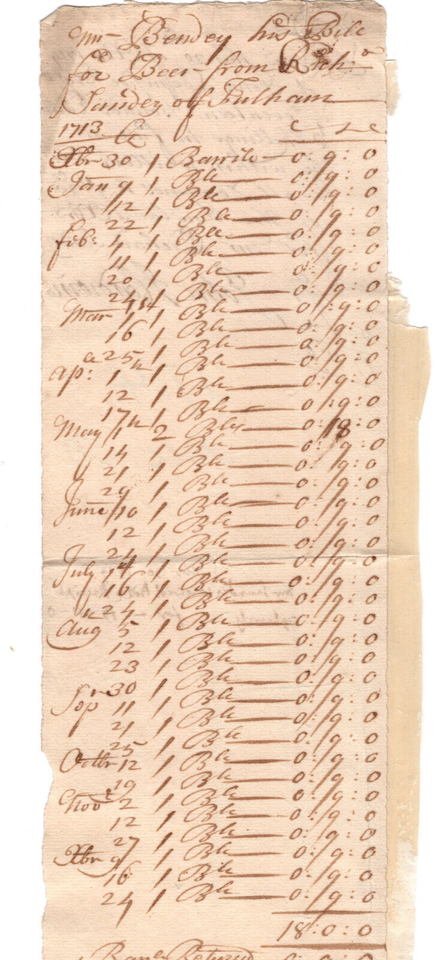 Mr Bendey his Bill
for Beer from Richd
Sandey of Fulham
1713
Xbr 30 1 Barrile 0:9:0
Jan 9 1 Ble 0:9:0
12 1 Ble 0:9:0
22 1 Ble 0:9:0
feb: 4 1 Ble 0:9:0
11 1 Ble 0:9:0
20 1 Ble 0:9:0
24 1 Ble 0:9:0
Mar 1 Ble 0:9:0
16 1 Ble 0:9:0
25 1 Ble 0:9:0
ap: 1 1 Ble 0:9:0
12 1 Ble 0:9:0
17 1 Ble 0:9:0
May 1 2 Bles 0:18:0
14 1 Ble 0:9:0
21 1 Ble 0:9:0
29 1 Ble 0:9:0
June 10 1 Ble 0:9:0
12 1 Ble 0:9:0
24 1 Ble 0:9:0
July 1 Ble 0:9:0
16 1 Ble 0:9:0
24 1 Ble 0:9:0
Aug 5 1 Ble 0:9:0
12 1 Ble 0:9:0
23 1 Ble 0:9:0
30 1 Ble 0:9:0
Sepr 11 1 Ble 0:9:0
21 1 Ble 0:9:0
25 1 Ble 0:9:0
Octbr 12 1 Ble 0:9:0
19 1 Ble 0:9:0
Novr 2 1 Ble 0:9:0
12 1 Ble 0:9:0
27 1 Ble 0:9:0
Xbr 9 1 Ble 0:9:0
16 1 Ble 0:9:0
24 1 Ble 0:9:0
18:0:0